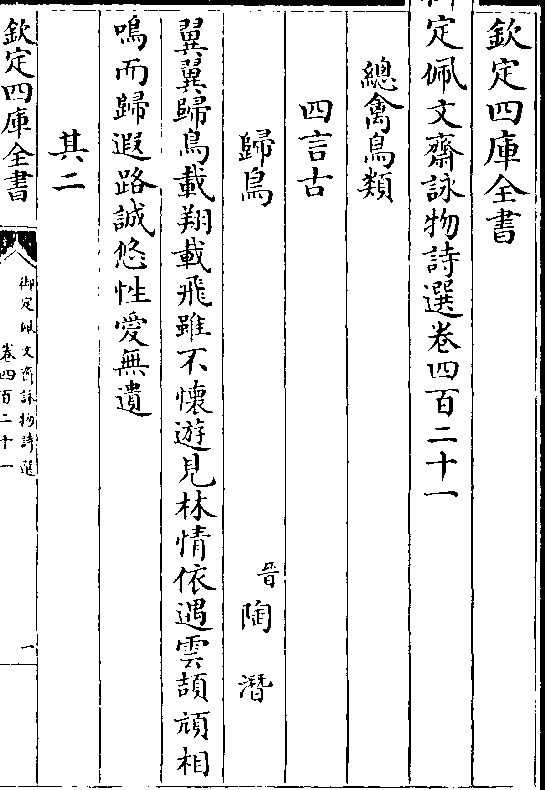 欽定四庫全書
御定佩文齋詠物詩選卷四百二十一
總禽鳥類
四言古
歸鳥　晉陶潛
翼翼歸鳥載翔載飛雖不懷遊見林情依遇雲頡頏相
鳴而歸遐路誠悠性愛無遺
其二
欽定四庫全書
御定佩文齋詠物詩選
卷四百二十一
一